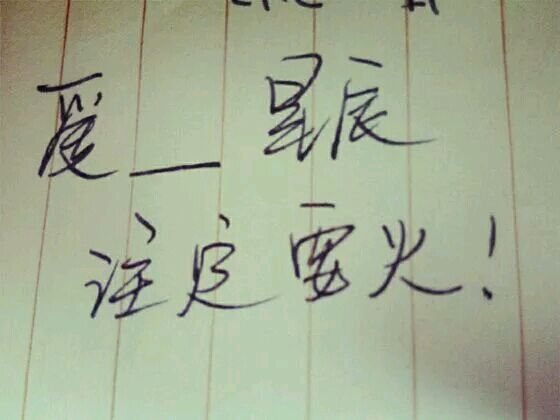 爱__星辰
注定要火！